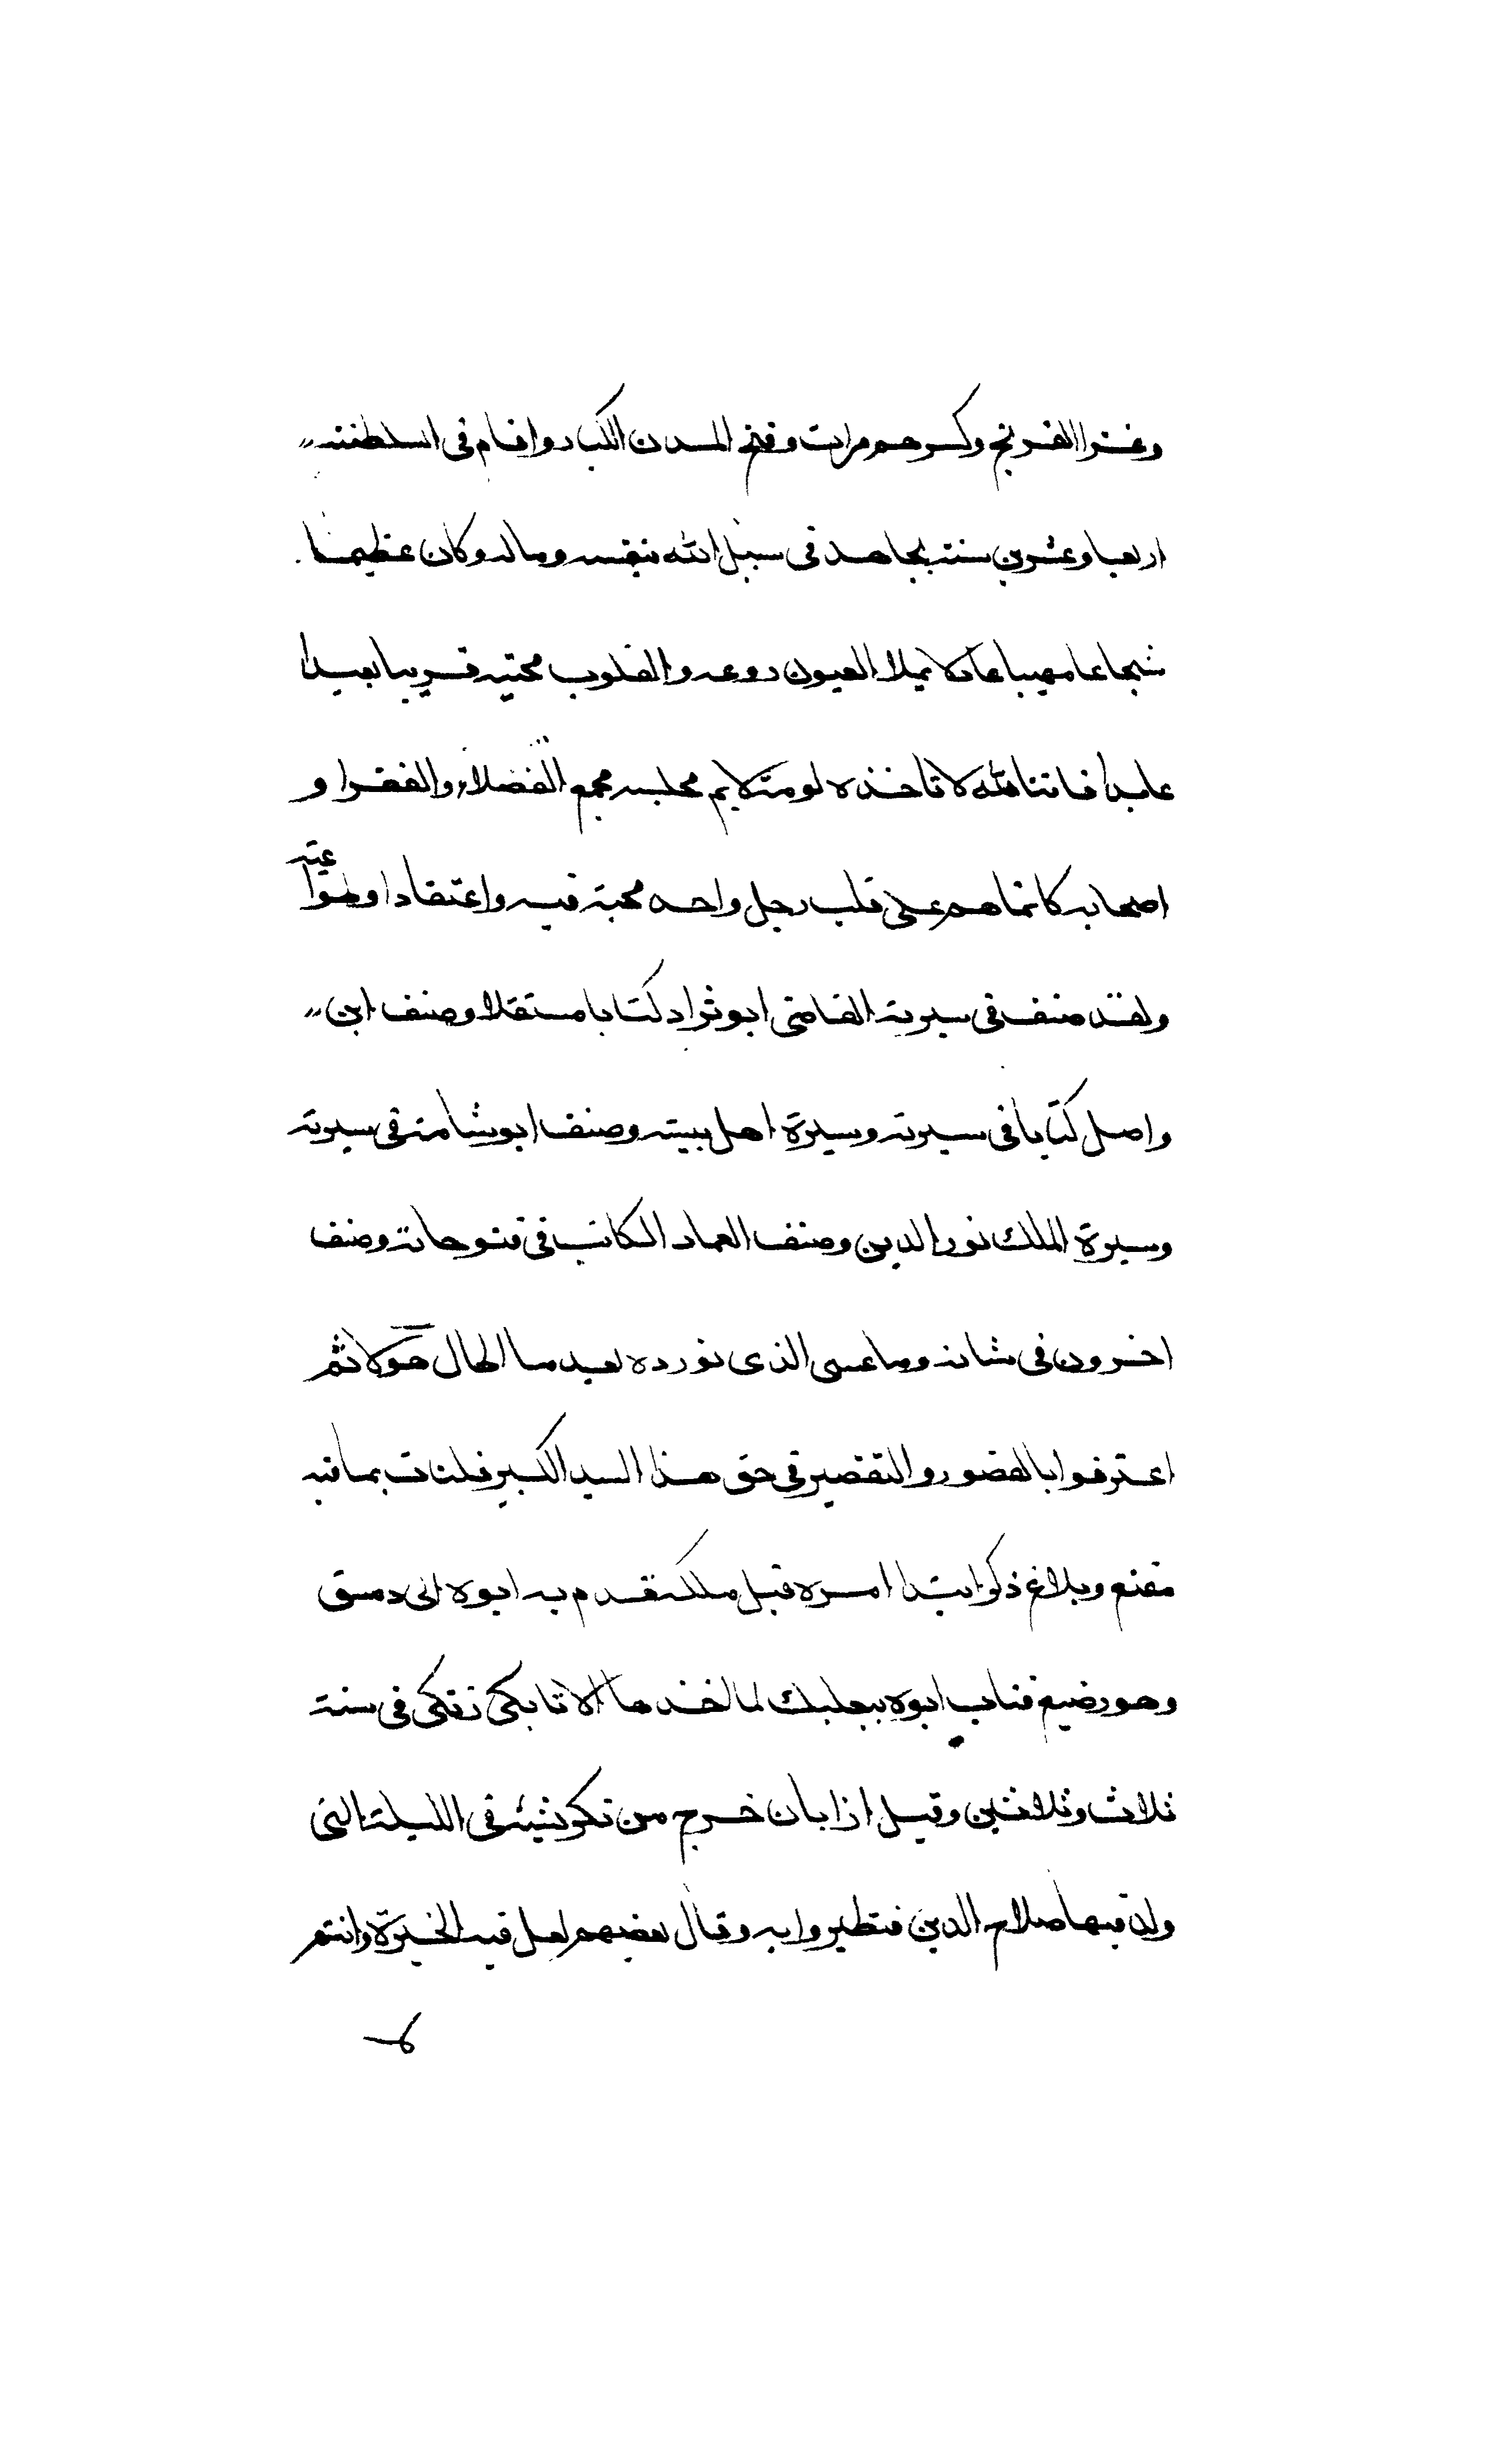 وغزا الفرنج وكسرهم مرات وفتح المدن الكبار واقام فى السلطنته
اربعا وعشرين سنته يجاهد فى سبيل الله بنفسه وماله وكان عظيما
شجاعا مهيبا عادلا يملا العيون روعه والقلوب محبته قريبا بعيدا
عابدا قانتا لله لا تاخذه لومة لايم مجلسه مجمع الفضلاء والفقرا و
اصحابه كانما هم على قلب رجل واحد محبة فيه واعتقادا وطواعيه
ولقد صنف فى سيرته القاضى ابو شداد كتابا مستقلا وصنف ابن
واصل كتابا فى سيرته وسيرة اهل بيته وصنف ابو شامة فى سيرته
وسيرة الملك نور الدين وصنف العماد الكاتب فى فتوحاته وصنف
اخرون فى شانه وما عسى الذى نورده بعد ما اطال هولا ثم
اعترفوا بالقصور والتقصير فى حق هذا السيد الكبير فلنات بما فيه
مقنع وبلاغ ذكر ابتدا امره قبل ملكه قدم به ابوه الى دمسق
وهو رضيع فناب ابوه ببعلبك لما اخذها الاتابكى زنكى فى سنة
ثلاث وثلاثين وقيل اذا بان خرج من تكريت فى الليلة التى
ولد فيها صلاح الدين فتطيروا به وقال بعضهم لعل فيه الخيرة وانتم
لا